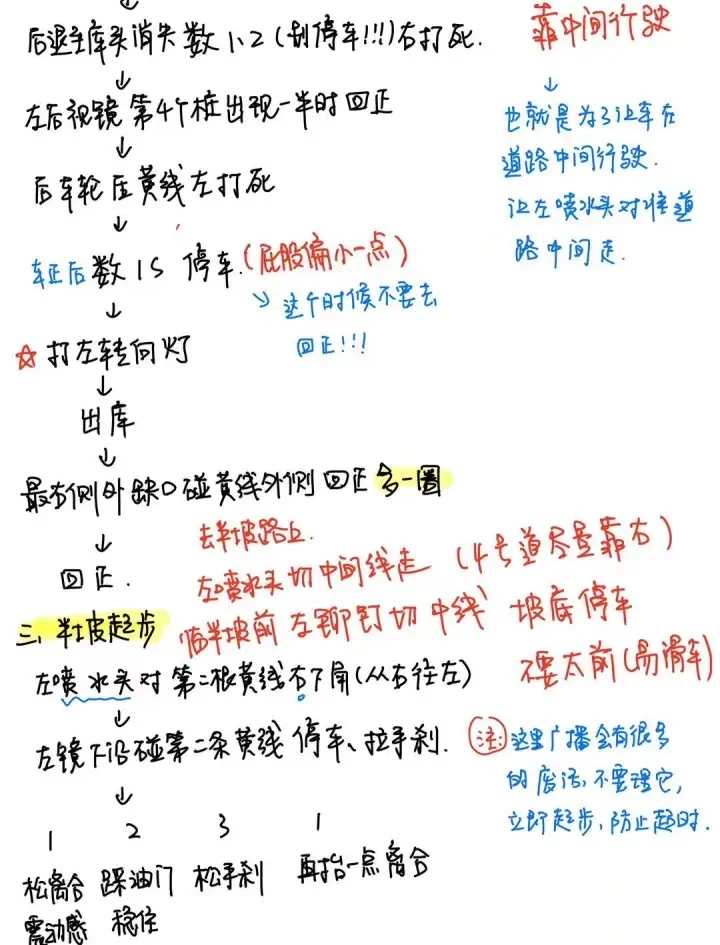 ↓
后退至库头消失数1、2(刻停车!!!)右打死.
↓
左后视镜第4个桩出现一半时回正
↓
后车轮压黄线左打死
↓
车正后数1S停车.(屁股偏小一点)
↘这个时候不要去
回正!!!
↓
☆打左转向灯
↓
出库
↓
最右侧外缺口碰黄线外侧回正多一圈
↓
回正.
靠中间行驶
↓
也就是为了让车在
道路中间行驶.
让左喷水头对准道
路中间走.
去半坡路上.
左喷水头切中间线走(4号道尽量靠右)
三、半坡起步
临半坡前左铆钉切中线 坡底停车
不要太前(易滑车)
左喷水头对第二根黄线右下角(从右往左)
↓
左镜下沿碰第二条黄线停车、拉手刹.
注:这里广播会有很多
的废话,不要理它,
立即起步,防止超时.
↓
1 2 3 1
松离合 踩油门 松手刹 再抬一点离合
震动感 稳住